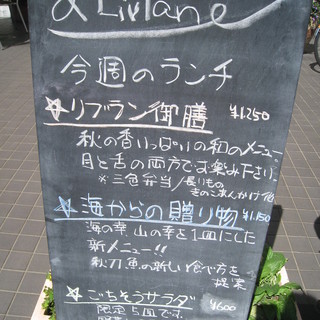 & Livlane
今週のランチ
☆リブラン御膳 ¥1,250
秋の香いっぱいの和のメニュー。
目と舌の両方でお楽み下さい。
※三色弁当/長いもの
きのこあんかけ他
☆海からの贈り物 ¥1,150
海の幸、山の幸を1皿にした
新メニュー!!
秋刀魚の新しい食べ方を
提案
☆ごちそうサラダ ¥600
限定5皿です。